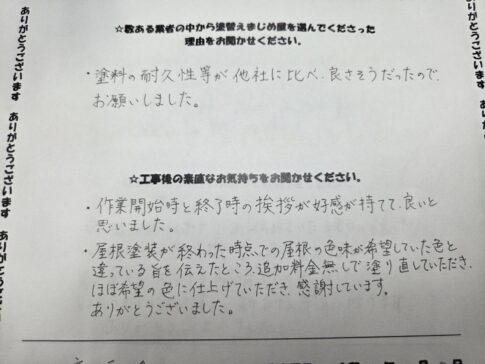 ☆数ある業者の中から塗替えまじめ屋を選んでくださった
理由をお聞かせください。
・塗料の耐久性等が他社に比べ、良さそうだったので、
お願いしました。
☆工事後の素直なお気持ちをお聞かせください。
・作業開始時と終了時の挨拶が好感が持てて、良いと
思いました。
・屋根塗装が終わった時点での屋根の色味が希望していた色と
違っている旨を伝えたところ、追加料金無しで塗り直していただき、
ほぼ希望の色に仕上げていただき、感謝しています。
ありがとうございました。
ありがとうございます ありがとうございます あり
ありがとうございます ありがとうございます